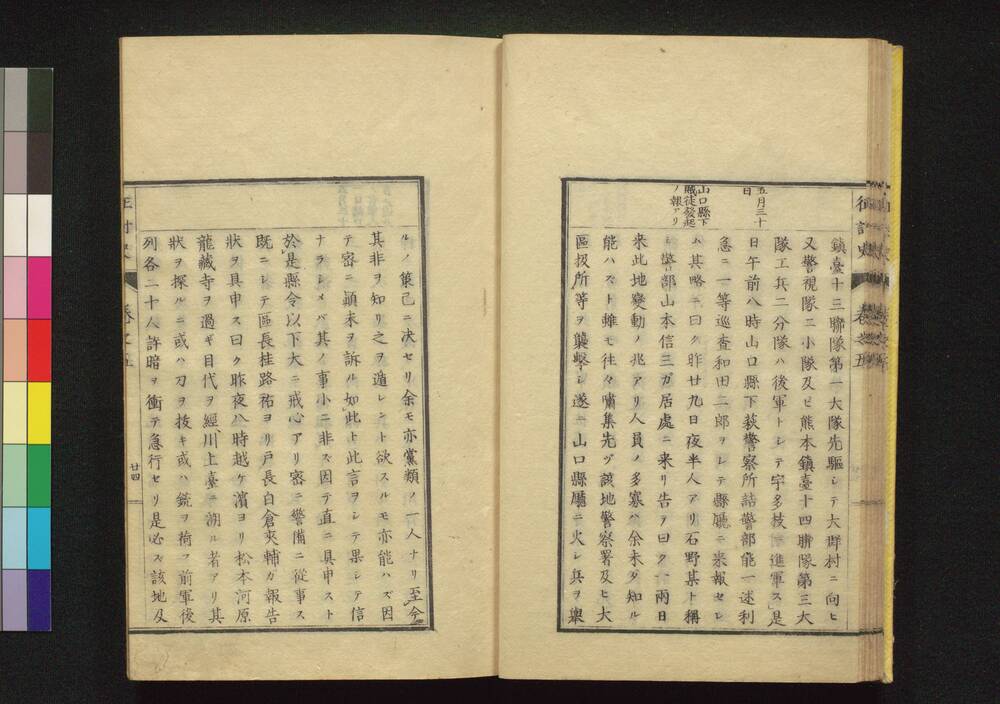 五月三十
日
山口縣下
賊徒發起
ノ報アリ
鎭臺十三聯隊第一大隊先驅シテ大野村ニ向ヒ
又警視隊二小隊及ヒ熊本鎭臺十四聯隊第三大
隊工兵二分隊ハ後軍トシテ宇多枝ニ進軍ス」是
日午前八時山口縣下萩警察所詰警部能一述利
急ニ一等巡査和田二郎ヲシテ縣廳ニ來報セシ
ム其略ニ曰ク昨廿九日夜半人アリ石野某ト稱
シ警部山本信三ガ居處ニ來リ告テ曰ク一兩日
來此地變動ノ兆アリ人員ノ多寡ハ余未ダ知ル
能ハズト雖モ往々嘯集先ヅ該地警察署及ヒ大
區扱所等ヲ襲擊シ遂ニ山口縣廳ニ火シ兵ヲ擧
卷之五
ルノ策己ニ决セリ余モ亦黨類ノ一人ナリ至今
其非ヲ知リ之ヲ遁レント欲スルモ亦能ハズ因
テ密ニ顚末ヲ訴ル如此ト此言ヲシテ果シテ信
ナラシメバ其ノ事小ニ非ズ因テ直ニ具申スト
於是縣令以下大ニ戒心アリ密ニ警備ニ從事ス
既ニシテ區長桂路祐ヨリ戸長白倉夾輔ガ報告
狀ヲ具申ス曰ク昨夜八時越ケ濱ヨリ松本河原
龍藏寺ヲ過ギ目代ヲ經川上臺ニ溯ル者アリ其
狀ヲ探ルニ或ハ刀ヲ抜キ或ハ銃ヲ荷フ前軍後
列各二十人許暗ヲ衝テ急行セリ是必ス該地及
卷之五
廿四